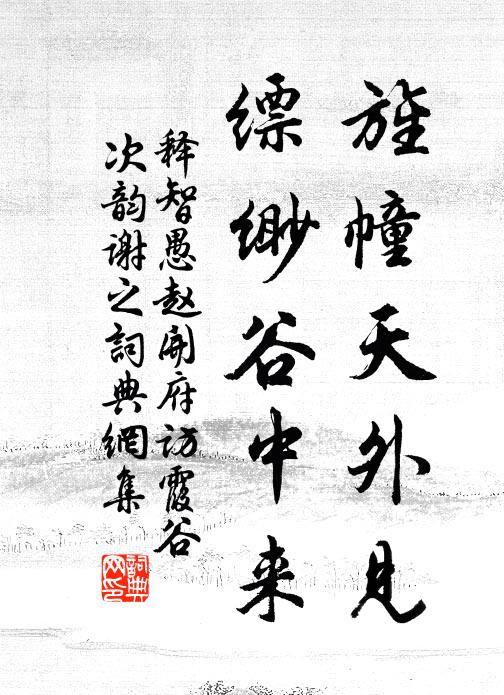 旌幢天外见
缥缈谷中来
释智愚赵开府访霞谷
次韵谢之词典网集
詞典